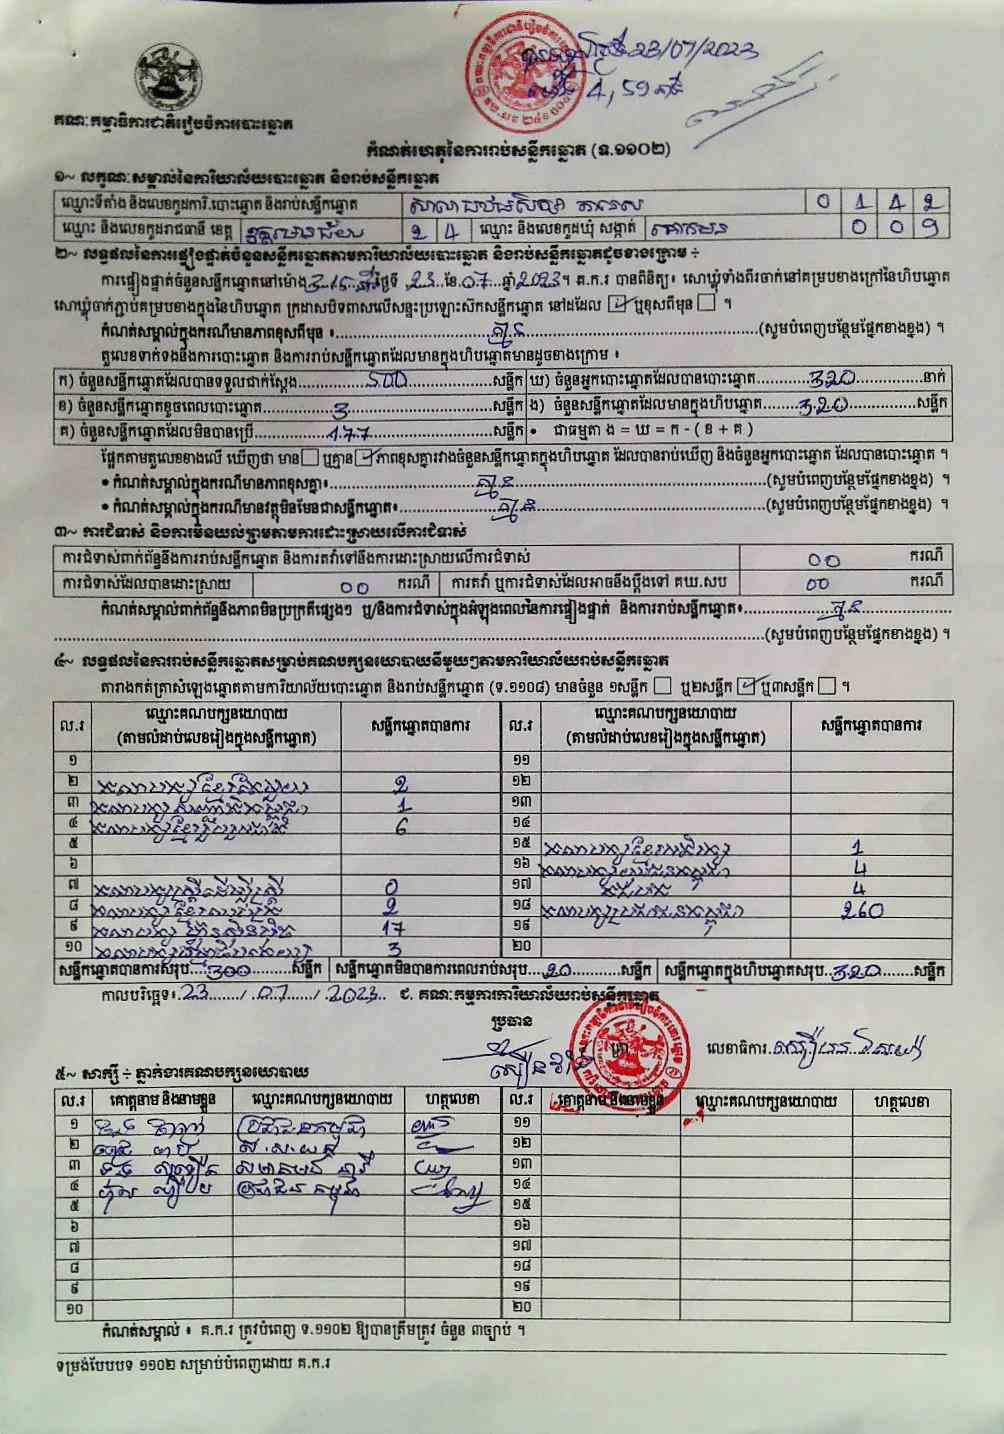 23/07/2023
4,59
គណៈកម្មាធិការជាតិរៀបចំការបោះឆ្នោត
កំណត់ហេតុនៃការរាប់សន្លឹកឆ្នោត (ទ.១១០២)
១~ លក្ខណៈសម្គាល់នៃការិយាល័យបោះឆ្នោត និងរាប់សន្លឹកឆ្នោត
ឈ្មោះទីតាំង និងលេខកូដការិ.បោះឆ្នោត និងរាប់សន្លឹកឆ្នោត 0 1 4 2
ឈ្មោះ និងលេខកូដរាជធានី ខេត្ត 2 4 ឈ្មោះ និងលេខកូដឃុំ សង្កាត់ 0 0 9
២~ លទ្ធផលនៃការផ្ទៀងផ្ទាត់ចំនួនសន្លឹកឆ្នោតតាមការិយាល័យបោះឆ្នោត និងរាប់សន្លឹកឆ្នោតដូចខាងក្រោម ÷
ការផ្ទៀងផ្ទាត់ចំនួនសន្លឹកឆ្នោតនៅម៉ោង 3:15 ថ្ងៃទី 23 ខែ 07 ឆ្នាំ 2023។ គ.ក.រ បានពិនិត្យ៖ សោឃ្មុំទាំងពីរចាក់នៅគម្របខាងក្រៅនៃហិបឆ្នោត
សោឃ្មុំចាក់ភ្ជាប់គម្របខាងក្នុងនៃហិបឆ្នោត ក្រដាសបិទពាសលើសន្ទះប្រឡោះស៊កសន្លឹកឆ្នោត នៅដដែល ☑ ឬខុសពីមុន ☐ ។
កំណត់សម្គាល់ក្នុងករណីមានភាពខុសពីមុន ៖ គ្មាន (សូមបំពេញបន្ថែមផ្នែកខាងខ្នង) ។
តួលេខទាក់ទងនឹងការបោះឆ្នោត និងការរាប់សន្លឹកឆ្នោតដែលមានក្នុងហិបឆ្នោតមានដូចខាងក្រោម ៖
ក) ចំនួនសន្លឹកឆ្នោតដែលបានទទួលជាក់ស្តែង 500 សន្លឹក ឃ) ចំនួនអ្នកបោះឆ្នោតដែលបានបោះឆ្នោត 320 នាក់
ខ) ចំនួនសន្លឹកឆ្នោតខូចពេលបោះឆ្នោត 3 សន្លឹក ង) ចំនួនសន្លឹកឆ្នោតដែលមានក្នុងហិបឆ្នោត 320 សន្លឹក
គ) ចំនួនសន្លឹកឆ្នោតដែលមិនបានប្រើ 177 សន្លឹក • ជាធម្មតា ង = ឃ = ក - ( ខ + គ )
ផ្អែកតាមតួលេខខាងលើ ឃើញថា មាន ☐ ឬគ្មាន ☑ ភាពខុសគ្នារវាងចំនួនសន្លឹកឆ្នោតក្នុងហិបឆ្នោត ដែលបានរាប់ឃើញ និងចំនួនអ្នកបោះឆ្នោត ដែលបានបោះឆ្នោត ។
• កំណត់សម្គាល់ក្នុងករណីមានភាពខុសគ្នា៖ គ្មាន (សូមបំពេញបន្ថែមផ្នែកខាងខ្នង) ។
• កំណត់សម្គាល់ក្នុងករណីមានវត្ថុមិនមែនជាសន្លឹកឆ្នោត៖ គ្មាន (សូមបំពេញបន្ថែមផ្នែកខាងខ្នង) ។
៣~ ការជំទាស់ និងការមិនយល់ព្រមតាមការដោះស្រាយលើការជំទាស់
ការជំទាស់ពាក់ព័ន្ធនឹងការរាប់សន្លឹកឆ្នោត និងការតវ៉ាទៅនឹងការដោះស្រាយលើការជំទាស់ 00 ករណី
ការជំទាស់ដែលបានដោះស្រាយ 00 ករណី ការតវ៉ា ឬការជំទាស់ដែលអាចនឹងប្តឹងទៅ គឃ.សប 00 ករណី
កំណត់សម្គាល់ពាក់ព័ន្ធនឹងភាពមិនប្រក្រតីផ្សេងៗ ឬ/និងការជំទាស់ក្នុងអំឡុងពេលនៃការផ្ទៀងផ្ទាត់ និងការរាប់សន្លឹកឆ្នោត៖ គ្មាន
(សូមបំពេញបន្ថែមផ្នែកខាងខ្នង) ។
៤~ លទ្ធផលនៃការរាប់សន្លឹកឆ្នោតសម្រាប់គណបក្សនយោបាយនីមួយៗតាមការិយាល័យរាប់សន្លឹកឆ្នោត
តារាងកត់ត្រាសំឡេងឆ្នោតតាមការិយាល័យបោះឆ្នោត និងរាប់សន្លឹកឆ្នោត (ទ.១១០៨) មានចំនួន ១សន្លឹក ☐ ឬ២សន្លឹក ☑ ឬ៣សន្លឹក ☐ ។
ល.រ ឈ្មោះគណបក្សនយោបាយ (តាមលំដាប់លេខរៀងក្នុងសន្លឹកឆ្នោត) សន្លឹកឆ្នោតបានការ ល.រ ឈ្មោះគណបក្សនយោបាយ (តាមលំដាប់លេខរៀងក្នុងសន្លឹកឆ្នោត) សន្លឹកឆ្នោតបានការ
១ ១១
២ 2 ១២
៣ 1 ១៣
៤ 6 ១៤
៥ ១៥ 1
៦ ១៦ 4
៧ 0 ១៧ 4
៨ 2 ១៨ 260
៩ 17 ១៩
១០ 3 ២០
សន្លឹកឆ្នោតបានការសរុប 300 សន្លឹក សន្លឹកឆ្នោតមិនបានការពេលរាប់សរុប 20 សន្លឹក សន្លឹកឆ្នោតក្នុងហិបឆ្នោតសរុប 320 សន្លឹក
កាលបរិច្ឆេទ៖ 23 / 07 / 2023 ជ. គណៈកម្មការការិយាល័យរាប់សន្លឹកឆ្នោត
ប្រធាន
លេខាធិការ
៥~ សាក្សី ÷ ភ្នាក់ងារគណបក្សនយោបាយ
ល.រ គោត្តនាម និងនាមខ្លួន ឈ្មោះគណបក្សនយោបាយ ហត្ថលេខា ល.រ គោត្តនាម និងនាមខ្លួន ឈ្មោះគណបក្សនយោបាយ ហត្ថលេខា
១ ប្រជាជនកម្ពុជា ១១
២ ១២
៣ ១៣
៤ ប្រជាជន កម្ពុជា ១៤
៥ ១៥
៦ ១៦
៧ ១៧
៨ ១៨
៩ ១៩
១០ ២០
កំណត់សម្គាល់ ៖ គ.ក.រ ត្រូវបំពេញ ទ.១១០២ ឱ្យបានត្រឹមត្រូវ ចំនួន ៣ច្បាប់ ។
ទម្រង់បែបបទ ១១០២ សម្រាប់បំពេញដោយ គ.ក.រ